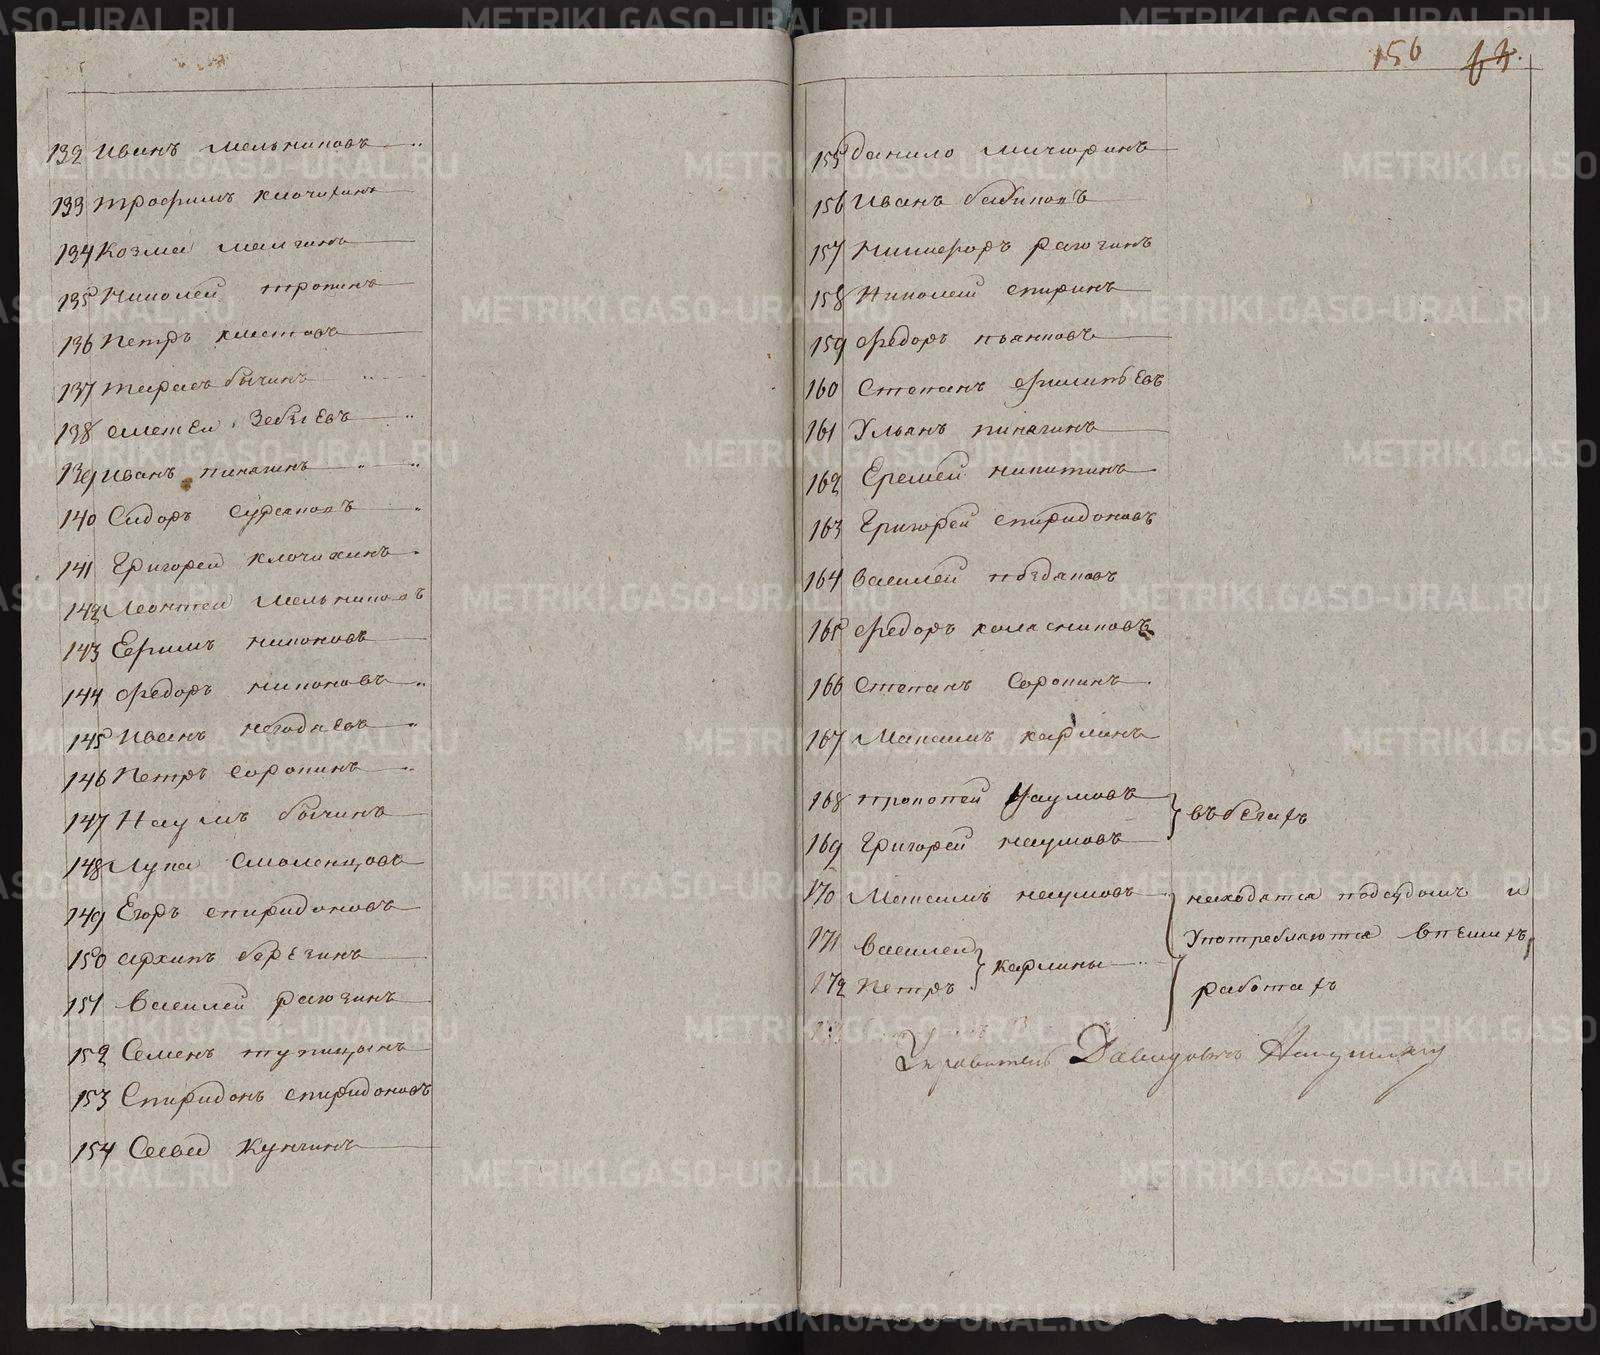 132 Иванъ Мельниковъ
133 Трофимъ Клочихинъ
134 Козма Мамгинъ
135 Николай Тропинъ
136 Петръ
137 Тарасъ Бычинъ
138
139 Иванъ Пинягинъ
140 Сидоръ
141 Григорей Клочихинъ
142 Леонтей Мельниковъ
143 Ефимъ Никоновъ
144 Федоръ Никоновъ
145 Иванъ Негодяевъ
146 Петръ Сорокинъ
147 Наумъ Бычинъ
148 Лука Смоленцовъ
149 Егоръ Спиридоновъ
150 Архипъ Берегинъ
151 Василей
152 Семенъ Тупицынъ
153 Спиридонъ Спиридоновъ
154 Савва Кунгинъ
156
155 Данило Мичюринъ
156 Иванъ Бабиковъ
157 Никифоръ
158 Николай Спиринъ
159 Федоръ Пьянковъ
160 Степанъ Филипьевъ
161 Ульянъ Пинягинъ
162 Еремей Никитинъ
163 Григорей Спиридоновъ
164 Василей
165 Федоръ Колясниковъ
166 Степанъ Сорокинъ
167 Максимъ Карлинъ
168 Прокопей Наумовъ
въ бегахъ
169 Григорей Наумовъ
170 Максимъ Наумовъ
находятся подсудомъ и
171 Василей
употребляются впешихъ
Карлины
172 Петръ
работахъ
Управитель
METRIKI.GASO-URAL.RU